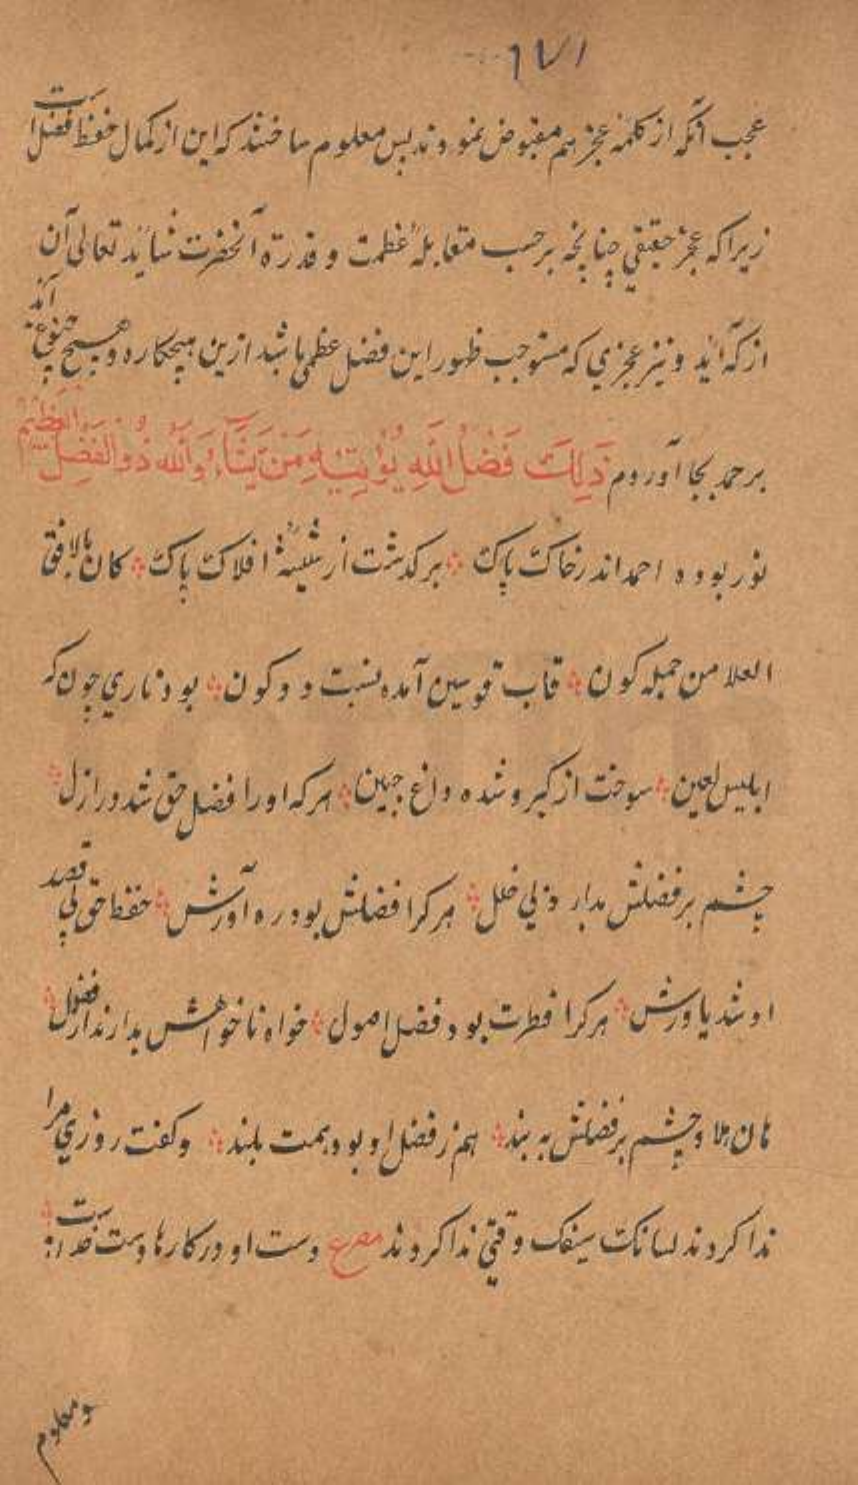 ١٧١
عجب آنکه از کلمهٔ عجز هم مقبوض نمودند پس معلوم ساختند که این از کمال حفظ فضل است
زیرا که عجز حقیقی چنانچه برحسب مقابلهٔ عظمت و قدرة آنحضرت شاید تعالی آن
از که آید و نیز عجزی که مستوجب ظهور این فضل عظمی باشد ازین هیچکاره و هیچ آید
برحمد بجا آوردم ذَلِكَ فَضْلُ اللّٰهِ يُؤْتِيْهِ مَنْ يَشَآءُ وَاللّٰهُ ذُو الْفَضْلِ الْعَظِيْمِ
نور بوده احمد اندر خاک پاک ؞ برگذشت از شیشهٔ افلاک پاک ؞ کان بالافق
العلا من جمله کون ؞ قاب قوسین آمده نسبت دو کون ؞ بود ناری چون که
ابلیس لعین ؞ سوخت از کبر و شده داغ جبین ؞ هرکه اورا فضل حق شد در ازل ؞
چشم بر فضلش مدار و بی خلل ؞ هر کرا فضلش بود ره آورش ؞ حفظ حق بی قصد
او شد یاورش ؞ هر کرا فطرت بود فضل اصول ؞ خواه ناخواهش بدارند از فضول ؞
هان هلا و چشم بر فضلش به بند ؞ هم ز فضل او بود همت بلند ؞ و گفت روزی مرا
ندا کردند لسانک سیفک و وقتی ندا کردند مصرع دست او در کارها دست خداست ؞
و معلوم